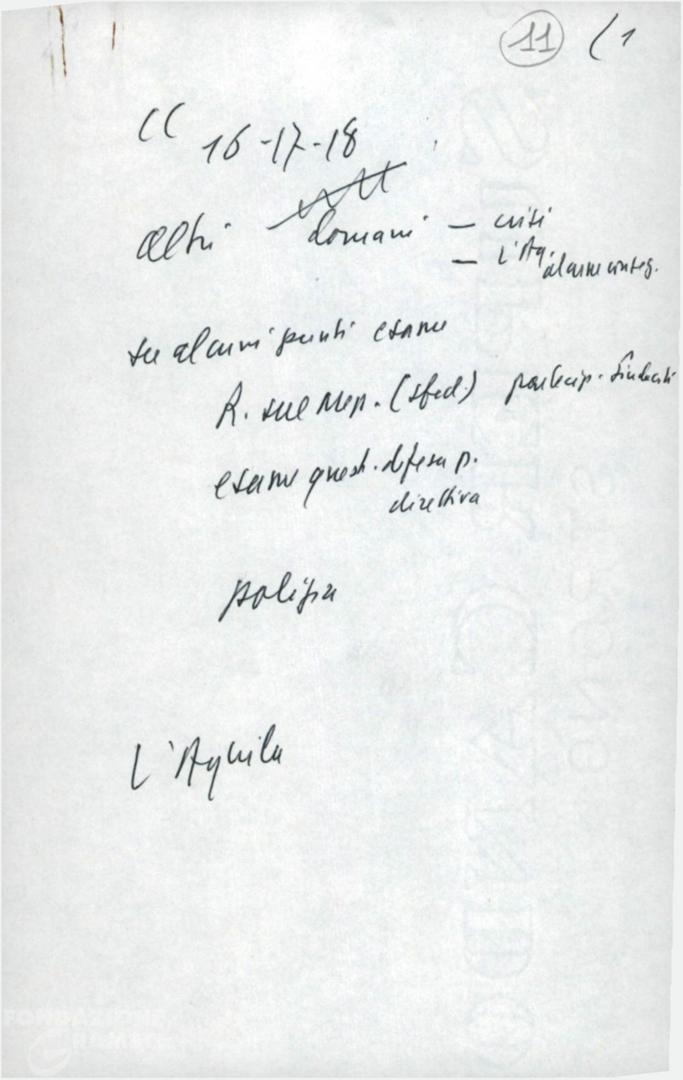 11 (1
CC 16-17-18
altri domani - crisi
- L'Aq.
su alcuni punti esame
R. sul Mep. (sfed.) partecip. Sindacati
esame quest. difesa p.
direttiva
polizia
L'Aquila
FONDAZIONE
GRAMSCI